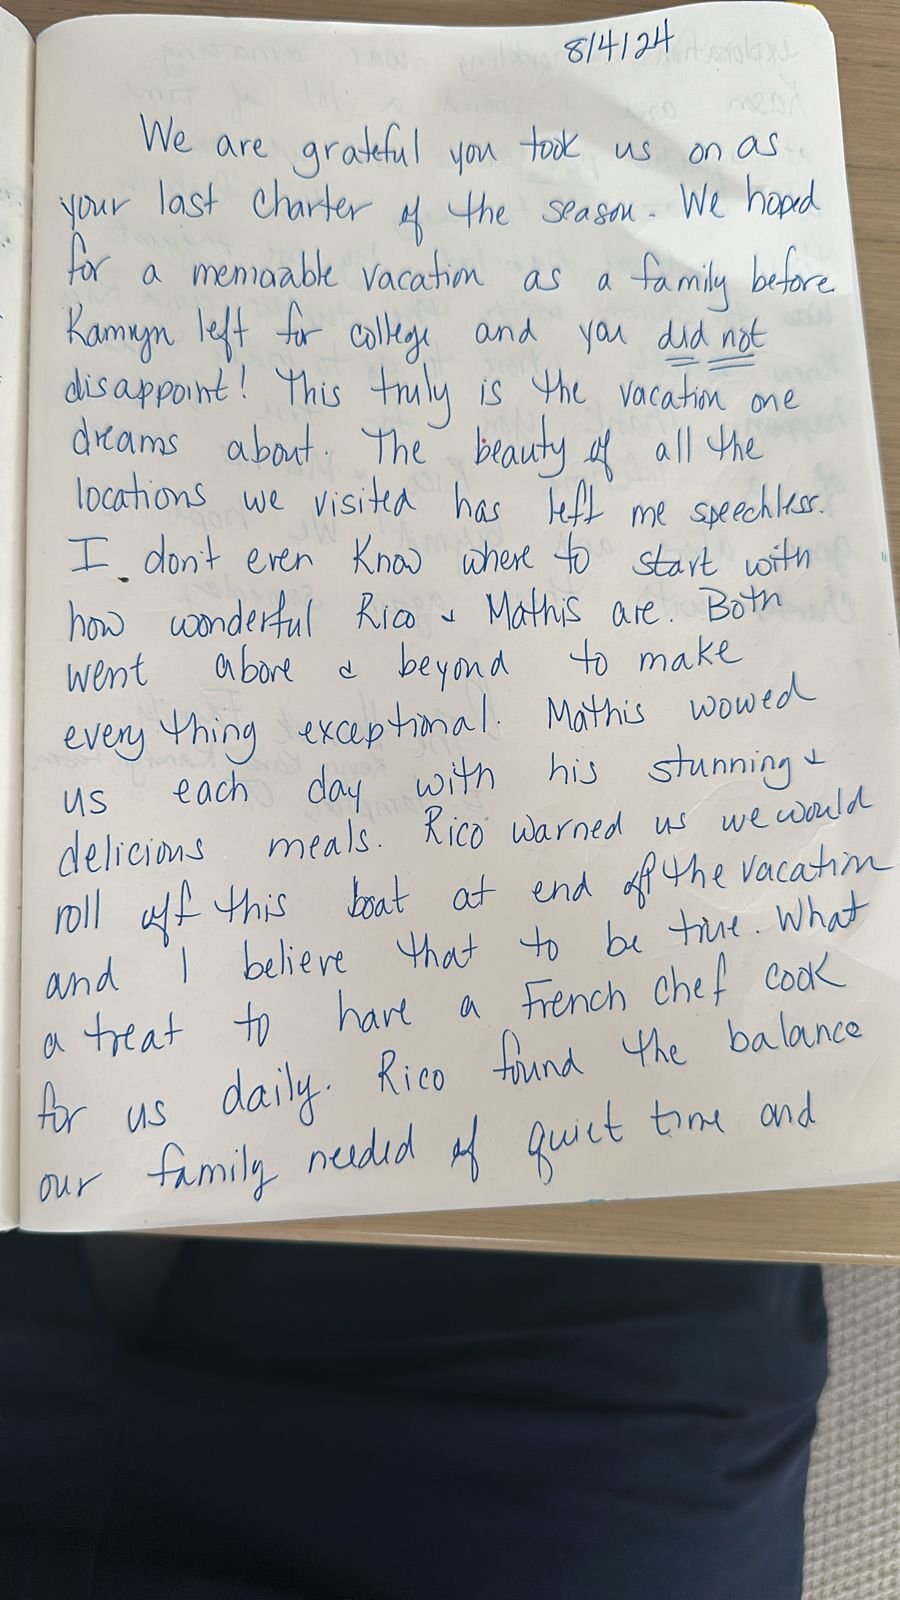 8/4/24
We are grateful you took us on as
your last charter of the season. We hoped
for a memorable vacation as a family before
Kamryn left for college and you did not
disappoint! This truly is the vacation one
dreams about. The beauty of all the
locations we visited has left me speechless.
I don't even know where to start with
how wonderful Rico & Mathis are. Both
went above & beyond to make
everything exceptional. Mathis wowed
us each day with his stunning &
delicious meals. Rico warned us we would
roll off this boat at end of the vacation
and I believe that to be true. What
a treat to have a French chef cook
for us daily. Rico found the balance
our family needed of quiet time and